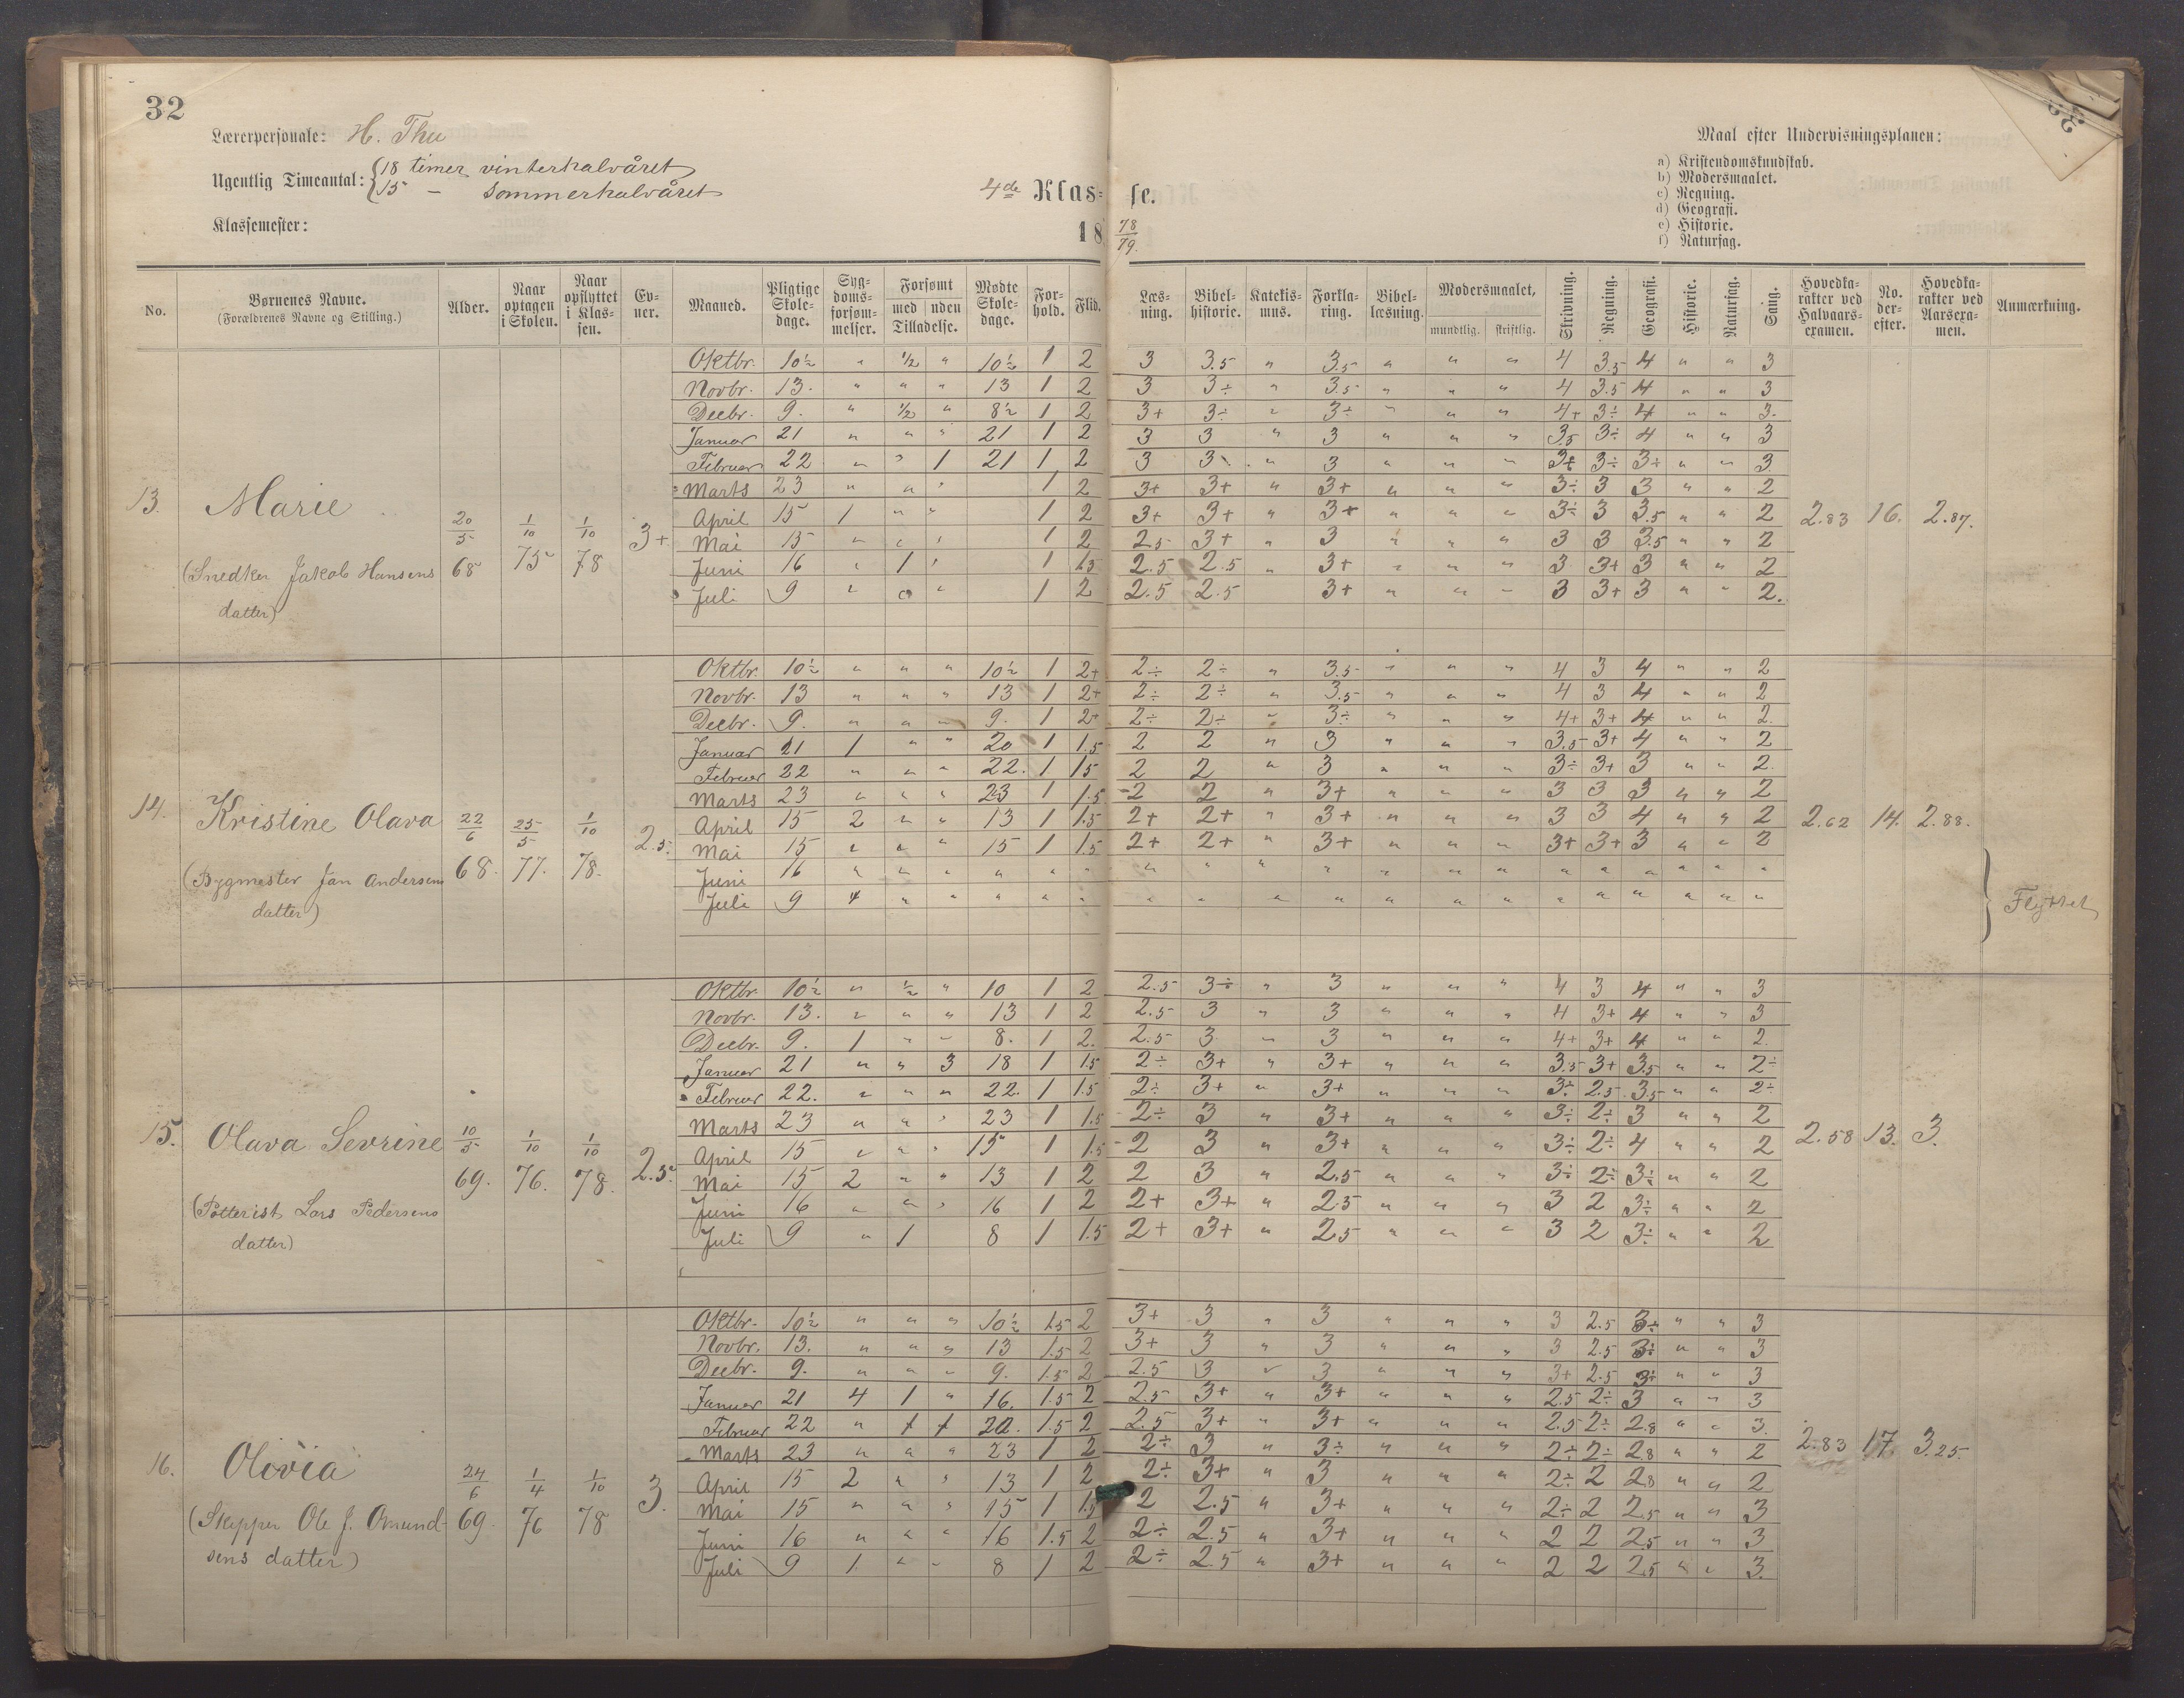 32
Lærerpersonale: H. Thu
Ugentlig Timeantal: { 18 timer vinterhalvåret
15 – sommerhalvåret
Klassemester:
4de Klasse.
18 78/79.
Maal efter Undervisningsplanen:
a) Kristendomskundskab.
b) Modersmaalet.
c) Regning.
d) Geografi.
e) Historie.
f) Naturfag.
No. | Børnenes Navne. (Forældrenes Navne og Stilling.) | Alder. | Naar optagen i Skolen. | Naar opflyttet i Klassen. | Evner. | Maaned. | Pligtige Skoledage. | Sygdomsforsømmelser. | Forsømt med uden Tilladelse. | Mødte Skoledage. | Forhold. | Flid. | Læsning. | Bibelhistorie. | Katekismus. | Forklaring. | Bibellæsning. | Modersmaalet, mundtlig. skriftlig. | Skrivning. | Regning. | Geografi. | Historie. | Naturfag. | Sang. | Hovedkarakter ved Halvaarsexamen. | No. derefter. | Hovedkarakter ved Aarsexamen. | Anmærkning.
13. Marie
(Snedker Jakob Hansens
datter)
20/5 68 1/10 75 1/10 78 3+
Oktbr. 10½ " ½ " 10½ 1 2 3 3.5 " 3.5 " " " 4 3.5 4 " " 3
Novbr. 13. " " " 13 1 2 3 3÷ " 3.5 " " " 4 3.5 4 " " 3
Decbr. 9. " ½ " 8½ 1 2 3+ 3÷ " 3÷ " " " 4+ 3÷ 4 " " 3.
Januar 21 " " " 21 1 2 3 3 " 3 " " " 3.5 3÷ 4 " " 3
Februar 22 " " 1 21 1 2 3 3 " 3 " " " 3÷ 3÷ 3÷ " " 3
Marts 23 " " " 1 2 3+ 3+ " 3+ " " " 3÷ 3 3 " " 2
April 15 1 " " 1 2 3+ 3+ " 3+ " " " 3÷ 3 3.5 " " 2
Mai 15 " " " 1 2 2.5 3+ " 3 " " " 3 3 3.5 " " 2
Juni 16 " 1 " 1 1.5 2.5 2.5 " 3+ " " " 3 3+ 3 " " 2
Juli 9 " " " 1 2 2.5 2.5 3+ " " " 3 3+ 3 " " 2.
2.83 16. 2.87.
14. Kristine Olava
(Bygmester Jan Andersens
datter)
22/6 68. 25/5 77. 1/10 78. 2.5.
Oktbr. 10½ " " " 10½ 1 2+ 2÷ 2÷ " 3.5 " " " 4 3 4 " " 2
Novbr. 13 " " " 13 1 2+ 2÷ 2÷ " 3.5 " " " 4 3 4 " " 2
Decbr. 9. " " " 9. 1 2+ 2÷ 2÷ " 3÷ " " " 4+ 3+ 4 " " 2.
Januar 21 1 " " 20 1 1.5 2 2 " 3 " " " 3.5 3+ 4 " " 2
Februar 22 " " " 22. 1 1.5 2 2 " 3 " " " 3÷ 3+ 3 " " 2
Marts 23 " " " 23 1 1.5 2 2 " 3+ " " " 3 3 3 " " 2
April 15 2 " " 13 1 1.5 2+ 2+ " 3+ " " " 3 3 4 " " 2
Mai 15 " " " 15 1 1.5 2+ 2+ " 3+ " " " 3+ 3+ 3 " " 2
Juni 16 " " " " " " " " " " " " " " " " " " "
Juli 9 4 " " " " " " " " " " " " " " " " " "
2.62 14. 2.88.
} Flyttet
15. Olava Sevrine
(Potterist Lars Pedersens
datter)
10/5 69. 1/10 76. 1/10 78. 2.5.
Oktbr. 10½ " ½ " 10 1 2 2.5 3÷ " 3 " " " 4 3 4 " " 3
Novbr. 13. " " " 13 1 2 2.5 3 " 3 " " " 4 3+ 4 " " 3
Decbr. 9. 1 " " 8. 1 2. 2.5 3 " 3 " " " 4+ 3+ 4 " " 2.
Januar 21 " " 3 18 1 1.5 2÷ 3+ " 3+ " " " 3.5 3+ 3.5 " " 2÷
Februar 22. " " " 22. 1 1.5 2÷ 3+ " 3+ " " " 3÷ 2.5 3.5 " " 2÷
Marts 23 " " " 23 1 1.5 2÷ 3 " 3+ " " " 3÷ 2÷ 3 " " 2
April 15 " " " 15 1 1.5 2 3 " 3+ " " " 3÷ 2÷ 4 " " 2
Mai 15 2 " " 13 1 2 2 3 " 2.5 " " " 3÷ 2÷ 3÷ " " 2
Juni 16 " " " 16 1 2 2+ 3+ " 2.5 " " " 3 2 3÷ " " 2
Juli 9 " 1 8 1 1.5 2+ 3+ " 2.5 " " " 3 2 3÷ " " 2
2.58 13. 3.
16. Olivia
(Skipper Ole J. Omund-
sens datter)
24/6 69. 1/4 76 1/10 78 3.
Oktbr. 10½ " " " 10½ 1.5 2 3+ 3 " 3 " " " 3 2.5 3÷ " " 3
Novbr. 13. " " " 13 1.5 2 3+ 3 " 3 " " " 3 2.5 3÷ " " 3
Decbr. 9. " " " 9. 1.5 2 2.5 3 " 3 " " " 3+ 2.5 3+ " " 3
Januar 21 4 1 " 16. 1.5 2 2.5 3+ " 3+ " " " 2.5 2÷ 3 " " 3
Februar 22 " 1 1 20. 1.5 2 2.5 3+ " 3+ " " " 2.5 2÷ 2.8 " " 3.
Marts 23 " " " 23 1 2 2÷ 3 " 3÷ " " " 2÷ 2÷ 2.8 " " 2
April 15 2 " " 13 1 2 2÷ 3+ " 3 " " " 2÷ 2 2.8 " " 2
Mai 15 " " " 15 1 1.5 2 2.5 " 3+ " " " 2÷ 2 2.5 " " 3
Juni 16 " " " 16 1.5 2 2÷ 2.5 " 3+ " " " 2 2 2.5 " " 3
Juli 9 1 " " 8 1 2 2÷ 2.5 " 3+ " " " 2 2 2.5 " " 3.
2.83 17. 3.25.